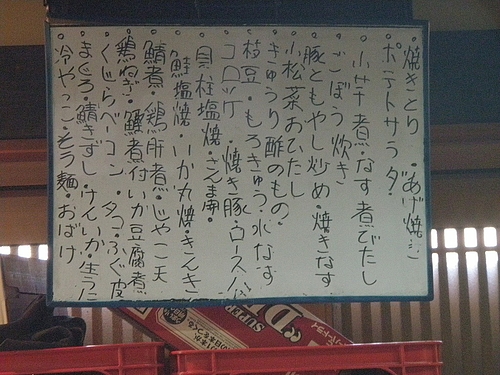 焼きとり ・あげ焼
ポテトサラダ・
小芋煮・なす煮びたし
ごぼう炊き
豚ともやし炒め・焼きなす
小松菜おひたし
きゅうり酢のもの・
枝豆・もろきゅう・水なす
コロッケ・焼き豚・ロースハム
貝柱塩焼・さんま開・
鮭塩焼・いか丸焼・きんき
鯖煮・鶏肝煮・じゃこ天
鶏ねぎ・鯛煮付・いか豆腐煮
くじらベーコン・タコ・ふぐ皮
まぐろ・鯖きずし・けんいか・生うに
冷やっこ・そう麺・おばけ
SUPER